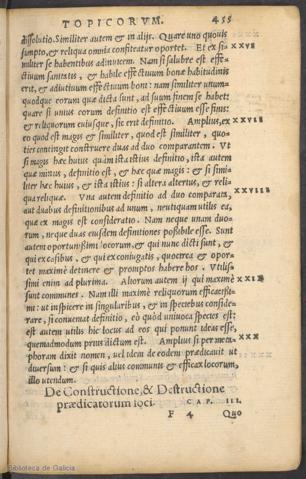 TOPICORVM. 455
dissolutio. Similiter autem & in alijs. Quare uno quouis
sumpto, & reliqua omnia confiteatur oportet. Et ex si= XXVI
militer se habentibus ad inuicem. Nam si salubre est effe=
ctiuum sanitatis, & habile effectiuum bonæ habitudinis
erit, & adiutiuum effectiuum boni: nam similiter unum=
quodque eorum quæ dicta sunt, ad suum finem se habet:
quare si unius eorum definitio est effectiuum esse finis:
& reliquorum cuiusque, sic erit definitio. Amplius, ex XXVII
eo quod est magis & similiter, quod est similiter, quo=
ties contingit construere duas ad duo comparantem. Vt
si magis hæc huius quàm ista istius definitio, ista autem
quæ minus, definitio est, & hæc quæ magis: & si simi=
liter hæc huius, & ista istius: si altera alterius, & reli=
qua reliquæ. Vna autem definitio ad duo comparata, XXVIII
aut duabus definitionibus ad unum, neutiquam utilis ea,
quæ ex magis est consideratio. Nam neque unam duo=
rum, neque duas eiusdem definitiones possibile esse. Sunt
autem oportunißimi locorum, & qui nunc dicti sunt, &
qui ex casibus, & qui ex coniugatis, quocirca & opor=
tet maximè detinere & promptos habere hos. Vtilis=
simi enim ad plurima. Aliorum autem ij qui maximè XXIX
sunt communes. Nam illi maximè reliquorum efficacissi=
mi: ut inspicere in singularibus, & in speciebus conside=
rare, si conuenit definitio, eò quòd uniuoca species est:
est autem utilis hic locus ad eos qui ponunt ideas esse,
quemadmodum prius dictum est. Amplius si per meta= XXX
phoram dixit nomen, uel idem de eodem prædicauit ut
diuersum: & si quis alius communis & efficax locorum,
illo utendum.
De Constructione, & Destructione
prædicatorum loci. CAP. III.
F 4 Quo
Biblioteca de Galicia